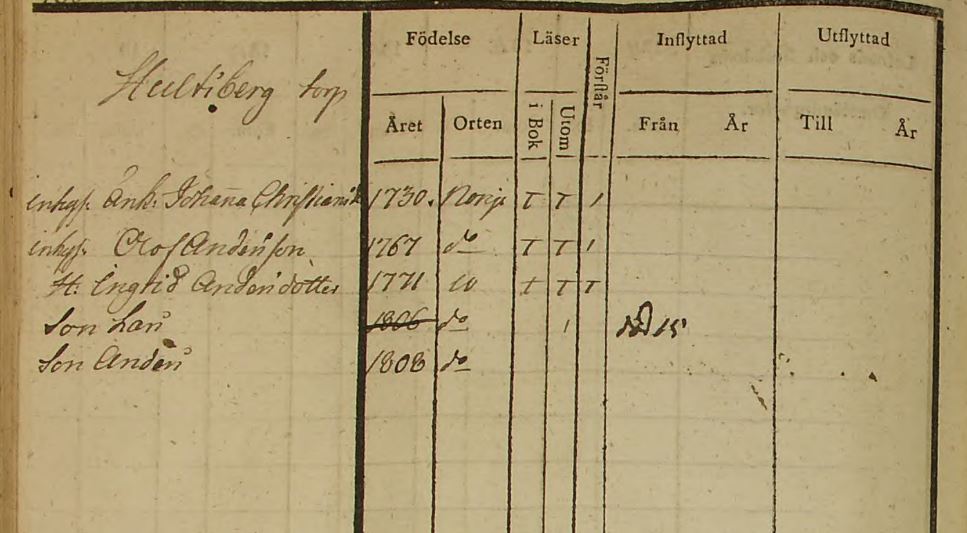 Födelse Läser Förstår Inflyttad Utflyttad
Hultiberg torp
Året Orten i Bok Utom Från År Till År
inhys. Änk: Johanna 1730. Norije T T /
inhys. Olof Andersson 1767 do T T /
H: Ingrid Andersdotter 1771 do T T T
Son Lars 1806 do /
Son Anders 1808 do